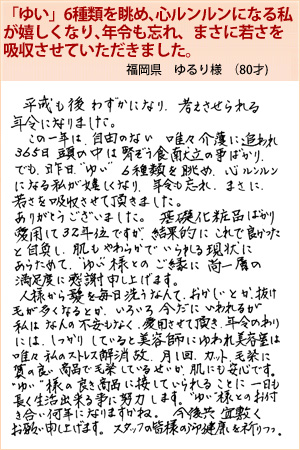 「ゆい」6種類を眺め、心ルンルンになる私
が嬉しくなり、年令も忘れ、まさに若さを
吸収させていただきました。
福岡県 ゆるり様 (80才)
平成も後わずかになり、考えさせられる
年令になりました。
この一年は、自由のない 唯々介護に追われ
365日 頭の中は腎ぞう食献立の事ばかり、
でも、昨日、"ゆい" 6種類を眺め、心ルンルン
になる私が嬉しくなり、年令も忘れ、まさに、
若さを吸収させて頂きました。
ありがとうございました。基礎化粧品ばかり
愛用して32年位ですが、結果的にこれで良かった
と自負し、肌もやわらかでいられる現状に
あらためて、"ゆい"様とのご縁に尚一層の
満足度に感謝申し上げます。
人様から髪を毎日洗うなんて、おかしいとか、抜け
毛が多くなるとか、いろいろ今だにいわれるが
私はなんの不安もなく、愛用させて頂き、年令のわり
には、しっかりしていると美容師にゆわれ美容室は
唯々私のストレス解消故、月1回、カット、毛染に
質の良い商品で毛染しているせいか、肌にも安心です。
"ゆい"様の良き商品に接していられることに一日も
長く生活出来る事に努力します。"ゆい"様とのお付
き合い何年になりますかね。今後共宜敷く
お願い申し上げます。スタッフの皆様の御健康を祈りつつ。